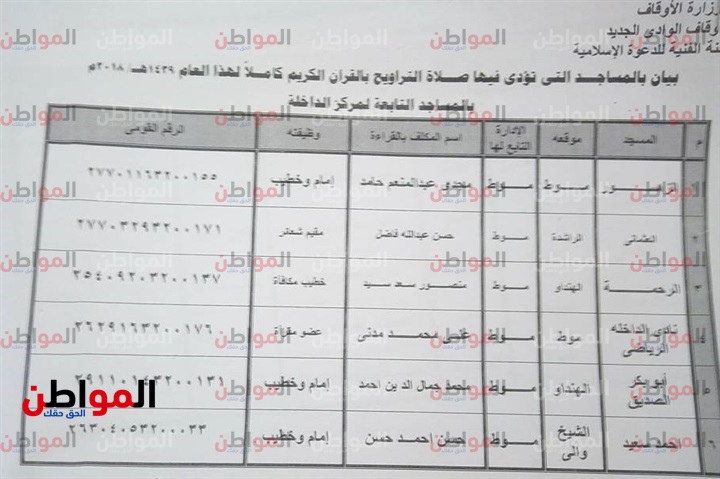 وزارة الأوقاف
أوقاف الوادى الجديد
الفنية للدعوة الإسلامية
بيان بالمساجد التى تؤدى فيها صلاة التراويح بالقران الكريم كاملاً لهذا العام ١٤٣٩هـ/ ٢٠١٨م
بالمساجد التابعة لمركز الداخلة
م المسجد موقعه الإدارة التابع لها اسم المكلف بالقراءة وظيفته الرقم القومى
موط موط مجدى عبدالمنعم حامد إمام وخطيب ٢٧٧٠١١٦٣٢٠٠١٥٥
٢ العثمانى الراشدة موط حسن عبدالله فاضل مقيم شعائر ٢٧٧٠٣٢٩٣٢٠٠١٧١
٣ الرحمة الهنداو موط منصور سعد سيد خطيب مكافأة ٢٥٤٠٩٢٠٣٢٠٠١٣٧
نادى الداخله الرياضى موط موط محمد مدنى عضو مقرأة ٢٦٢٩١٦٣٢٠٠١٧٦
٥ أبو بكر الصديق الهنداو موط محمد جمال الدين احمد إمام وخطيب ٢٩١١٠١٤٣٢٠٠١٣١
٦ احمد سعيد الشيخ والى موط حسن احمد حسن إمام وخطيب ٢٦٣٠٤٠٥٣٢٠٠٠٣٣
المواطن
الحق حقك